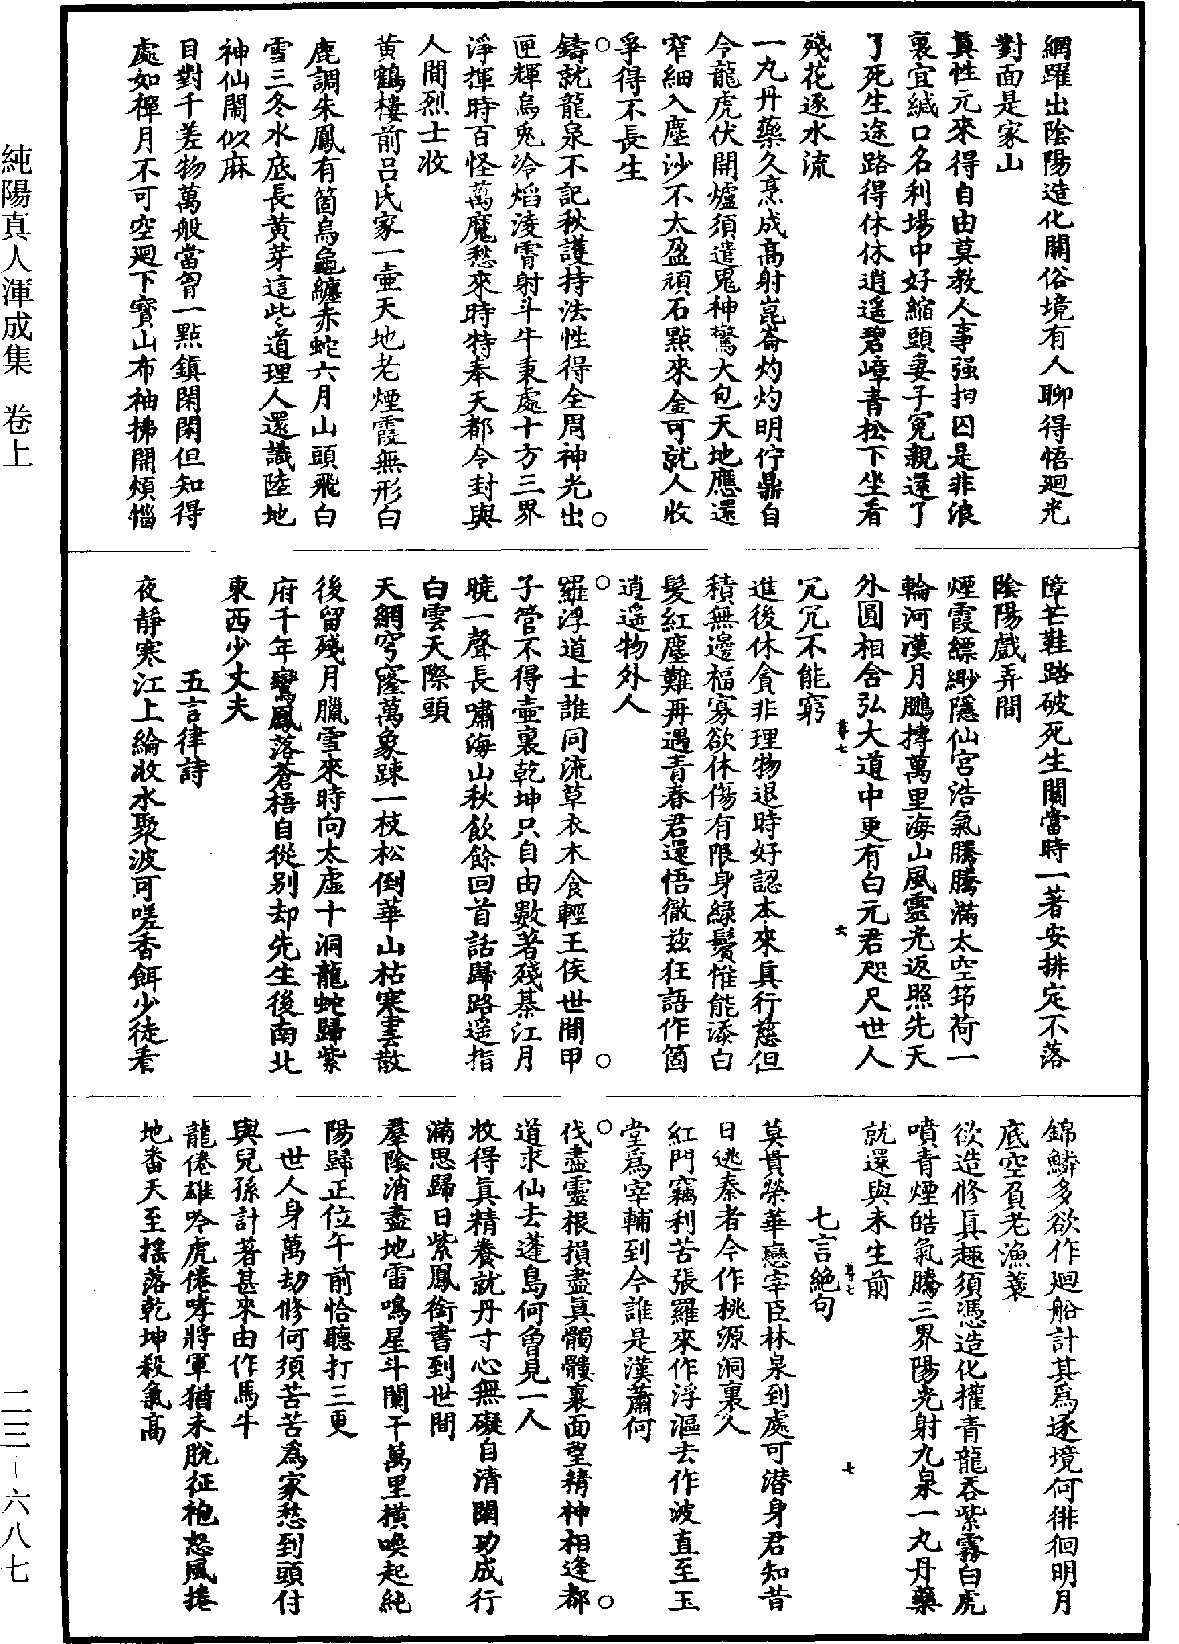 網躍出陰陽造化關俗境有人聊得悟廻光
對面是家山
真性元來得自由莫教人事強拘囚是非浪
裏宜緘口名利場中好縮頭妻子冤親還了
了死生途路得休休逍遙碧嶂青松下坐看
殘花逐水流
一丸丹藥久烹成高射崑崙灼灼明佇鼎自
令龍虎伏開爐須遣鬼神驚大包天地應還
窄細入塵沙不太盈頑石點來金可就人收
爭得不長生
鑄就龍泉不記秋護持法性得全周神光出
匣輝烏兔冷焰淩霄射斗牛秉處十方三界
淨揮時百怪萬魔愁來時特奉天都令封與
人間烈士收
黃鶴樓前呂氏家一壺天地老煙霞無形白
鹿調朱鳳有箇烏龜纏赤蛇六月山頭飛白
雪三冬水底長黃芽這些道理人還識陸地
神仙閙似麻
目對千差物萬般當胷一點鎮閑閑但知得
處如禪月不可空廻下寳山布袖拂開煩惱
障芒鞋踏破死生關當時一著安排定不落
陰陽戲弄間
煙霞縹緲隱仙宮浩氣騰騰滿太空筇荷一
輪河漢月鵬摶萬里海山風靈光返照先天
外圓相含弘大道中更有白元君咫尺世人
冗冗不能窮
尊七
六
進後休貪非理物退時好認本來真行慈但
積無邊福寡欲休傷有限身綠鬢惟能添白
髮紅塵難再遇青春君還悟徹兹狂語作箇
逍遥物外人
羅浮道士誰同流草衣木食輕王侯世間甲
子管不得壺裏乾坤只自由數著殘棊江月
曉一聲長嘯海山秋飲餘回首話歸路遥指
白雲天際頭
天網穹窿萬象踈一枝松倒華山枯寒雲散
後留殘月臘雪來時向太虛十洞龍蛇歸紫
府千年鸞鳳落蒼梧自從別却先生後南北
東西少丈夫
五言律詩
夜靜寒江上綸收水聚波可嗟香餌少徒看
錦鱗多欲作廻船計其為逐境何徘徊明月
底空負老漁蓑
欲造修真趣須憑造化權青龍吞紫霧白虎
噴青煙皓氣騰三界陽光射九泉一丸丹藥
就還與未生前
七言絕句
尊七
七
莫貫榮華戀宰臣林泉到處可潜身君知昔
日逃秦者今作桃源洞裏人
紅門竊利苦張羅來作浮漚去作波直至玉
堂爲宰輔到今誰是漢蕭何
伐盡靈根損盡真髑髏裏面望精神相逢都
道求仙去蓬島何曾見一人
收得真精養就丹寸心無礙自清閑功成行
滿思歸日紫鳳銜書到世間
羣陰消盡地雷鳴星斗闌干萬里橫喚起純
陽歸正位午前恰聽打三更
一世人身萬劫修何須苦苦爲家愁到頭付
與兒孫計著甚來由作馬牛
龍倦雄吟虎倦哮將軍猶未脫征袍怒風捲
地畨天至揺落乾坤殺氣高
純陽真人渾成集　卷上
二三－六八七